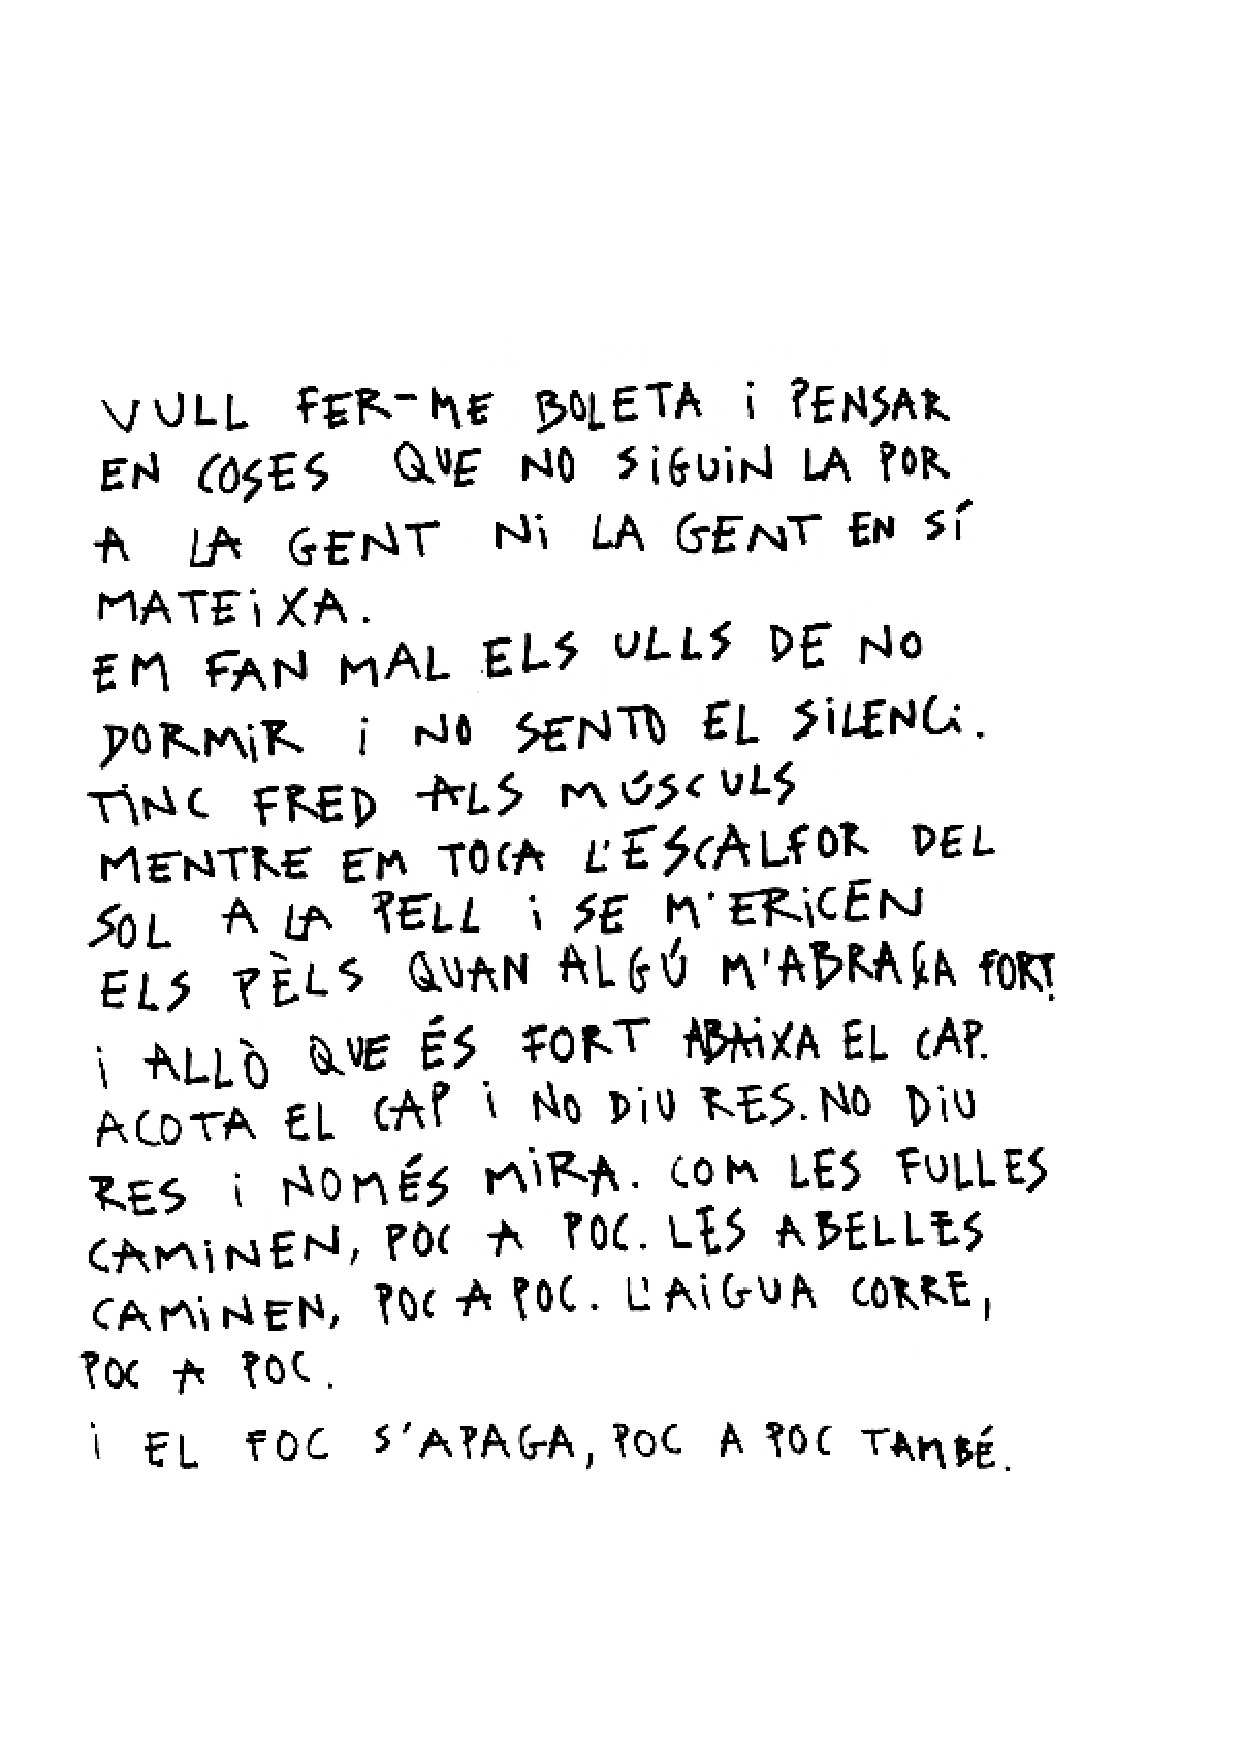 VULL FER-ME BOLETA i PENSAR
EN COSES QUE NO SiGUiN LA POR
A LA GENT Ni LA GENT EN SÍ
MATEiXA.
EM FAN MAL ELS ULLS DE NO
DORMiR i NO SENTO EL SiLENCi.
TiNC FRED ALS MÚSCULS
MENTRE EM TOCA L'ESCALFOR DEL
SOL A LA PELL i SE M'ERiCEN
ELS PÈLS QUAN ALGÚ M'ABRAÇA FORT.
i ALLÒ QUE ÉS FORT ABAiXA EL CAP.
ACOTA EL CAP i NO DiU RES. NO DiU
RES i NOMÉS MiRA. COM LES FULLES
CAMiNEN, POC A POC. LES ABELLES
CAMiNEN, POC A POC. L'AiGUA CORRE,
POC A POC.
i EL FOC S'APAGA, POC A POC TAMBÉ.